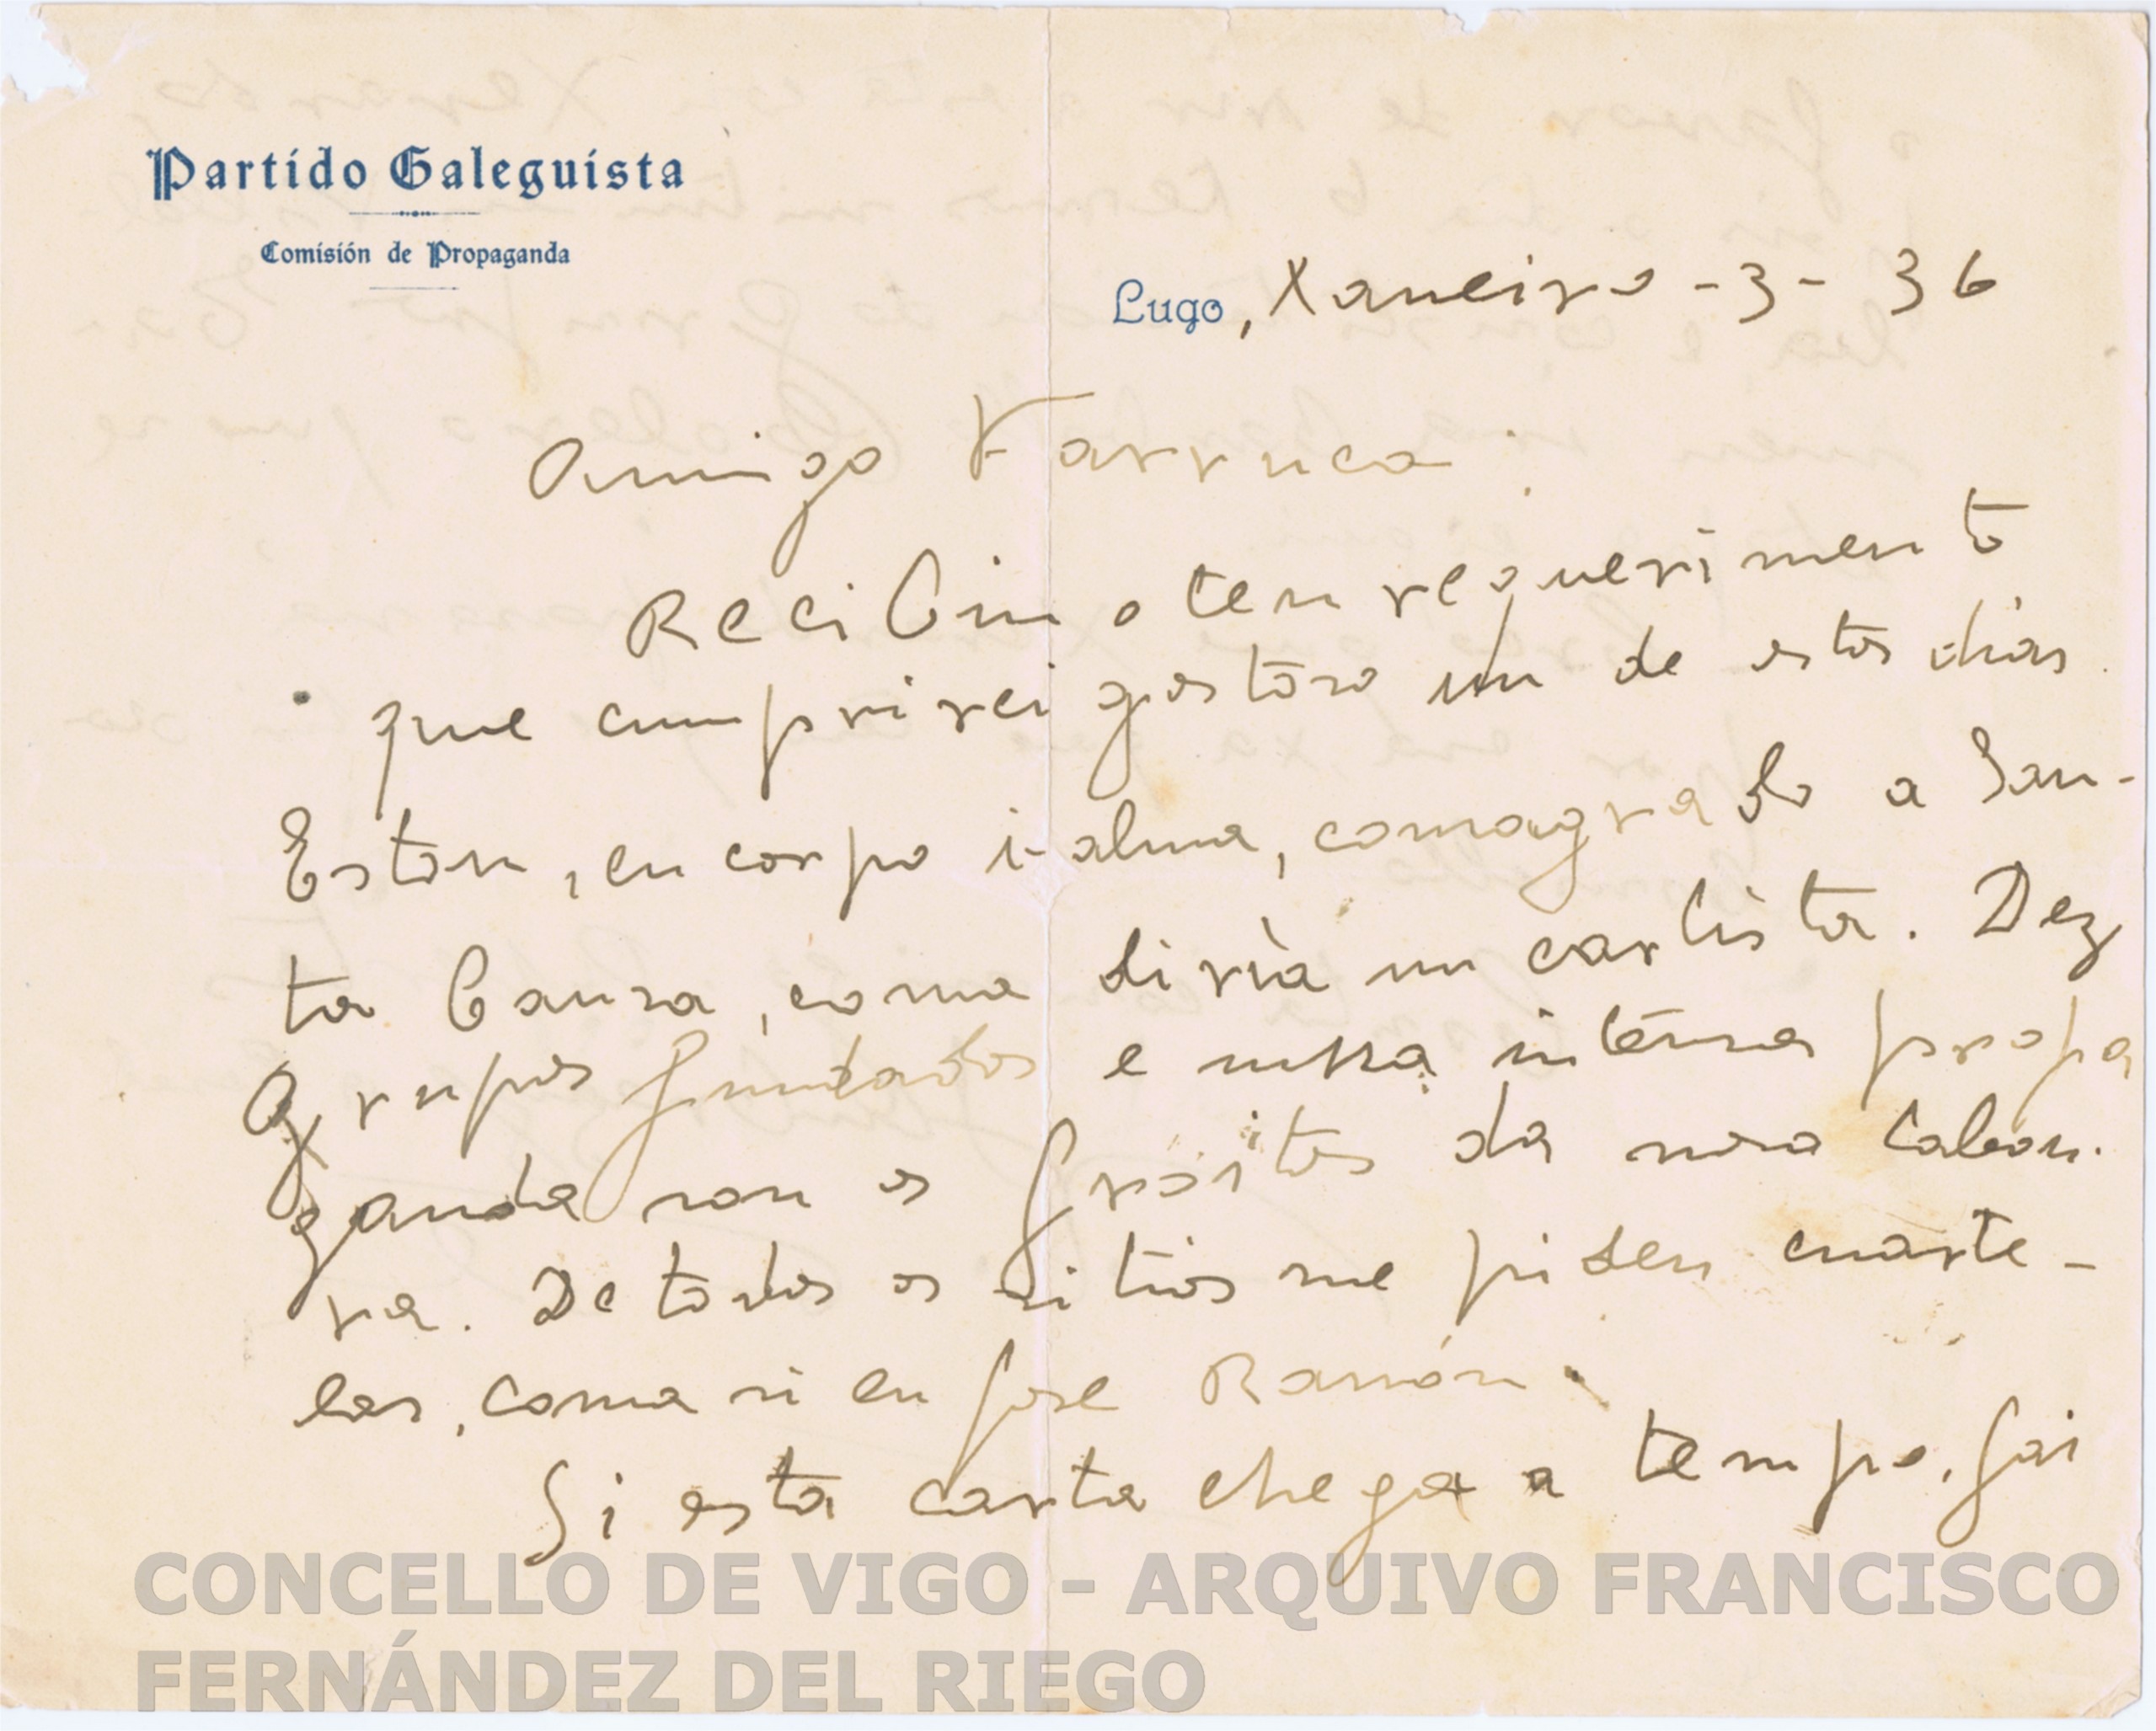 Partido Galeguista
Comisión de Propaganda
Lugo, Xaneiro - 3 - 36
Amigo Farruco:
Recibin o teu requerimento
que cumprirei gostoso un de estos días.
Estou, en corpo i-alma, consagrado a San-
ta Causa, coma diría un carlista. Dez
grupos fundados e unha intensa propa
ganda son os froitos da nosa labou-
ra. De todos os sitios me piden cuarte-
las, coma si eu fose Ramón.
Si esta carta chega a tempo, fai
CONCELLO DE VIGO - ARQUIVO FRANCISCO
FERNÁNDEZ DEL RIEGO